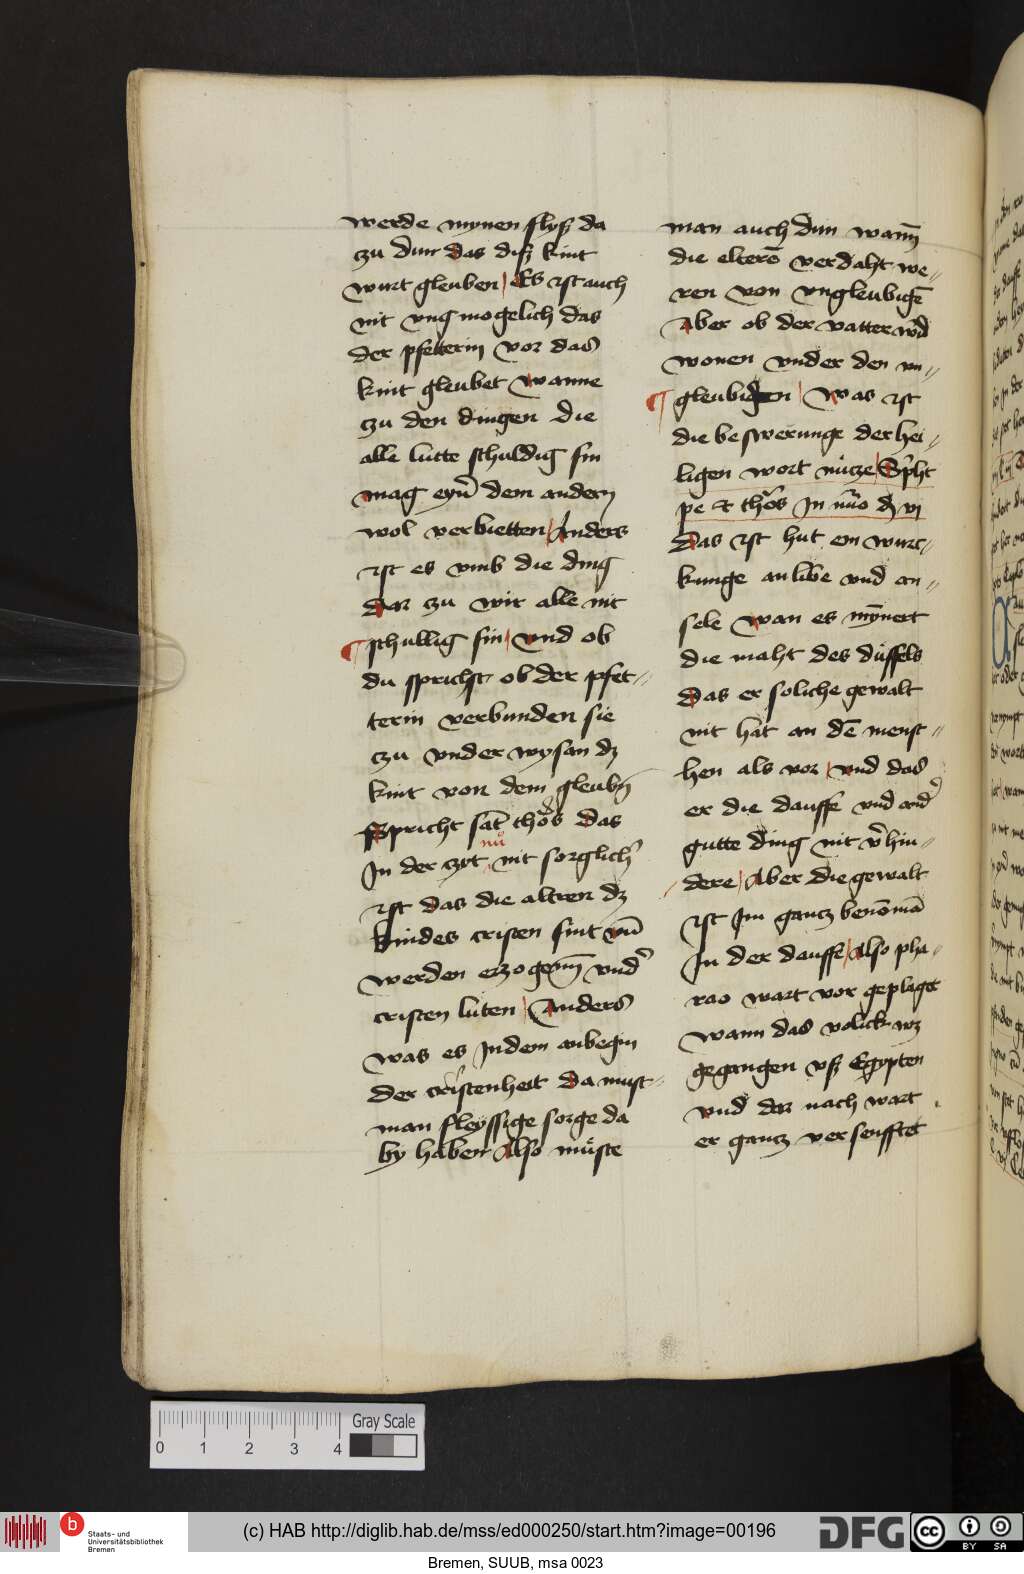 werde mynen flyß da
zu dun das diß kint
wurt gleuben / Es ist auch
nit vngmogelich das
der pfetterin vor das
kint gleubet wanne
zu den dingen die
alle lutte schuldig sin
mag eyn͛ dem andern
wol verbietten / Anders
ist es vmb die ding
Dar zu wir alle nit
¶ schullig sin / vnd ob
du sprichst ob der pfet-
terin verbunden sie
zu vnder wysan dz
kint von dem gleubn̄
Spricht sāt thōs das
nuͦ
In der zyt nit sorglich͛
ist das die altren dz
kindes cristen sint vn̄
werden erzogenn̄ vnd͛
cristen luten / Anders
was es Jn dem anbegin
der cristenheit da must-
man fleyssige sorge da
by haben Also muͤste
man auch dun wann̄
die elterē verdaht we-
ren von vngleubigē
Aber ob der vatter wd͛
wonen vnder den vn-
¶ gleubigen / Was ist
die beswerunge der hei-
ligen wort nuͤtze / Sp̄ht
pe et thōs Jn nūo dz vj
Das ist hut ein wurc-
kunge an libe vnd an-
sele wan es mȳnert
die maht des duͤffels
Das er soliche gewalt
nit hat an dē mensc-
hen als vor / vnd das
er die dauffe vnd and͛
gutte ding nit v͛hin-
dere / Aber die gewalt
ist Jm gancz benōmā
Jn der dauffe / Also pha-
rao wart vor geplaget
wann das volick wz
gegangen vß Egypten
vnd dar nach wart
er gancz versenfftet
0 1 2 3 4
Gray Scale
b Staats- und
Universitätsbibliothek
Bremen
(c) HAB http://diglib.hab.de/mss/ed000250/start.htm?image=00196
DFG
cc BY SA
Bremen, SUUB, msa 0023